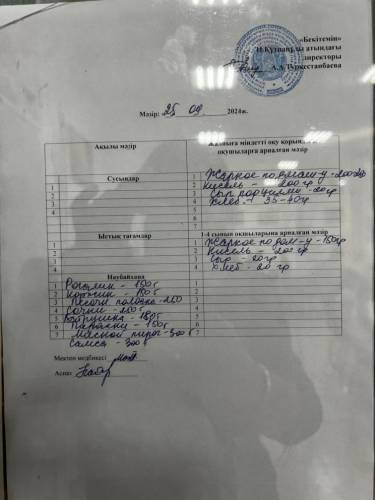 «Бекітемін»
атындағы
директоры
А.А.Туркестанбаева
Мәзір: 25 09 2024ж.
Ақылы мәзір
Жалпыға міндетті оқу қорынан
оқушыларға арналған мәзір
Сусындар
1 Жаркое по домаш-у - 200гр
1
2 Кисель - 200 гр
2
3 Сыр порционный - 20гр
3
4 Хлеб - 35-40гр
4
5
6
7
Ыстық тағамдар
1-4 сынып оқушыларына арналған мәзір
1
1 Жаркое по дом-у - 150гр
2
2 Кисель - 200 гр
3
3 Сыр - 20гр
4
4 Хлеб - 20 гр
Наубайхана
1 Рогалик - 150 г
2 - 150 г
3 Песочн полоска - 150
4 Сочни - 200 г
5 - 150 г
6 - 150 г
7 Мясной пирог - 300 г
Самса - 300 г
Мектеп медбикесі
Аспаз